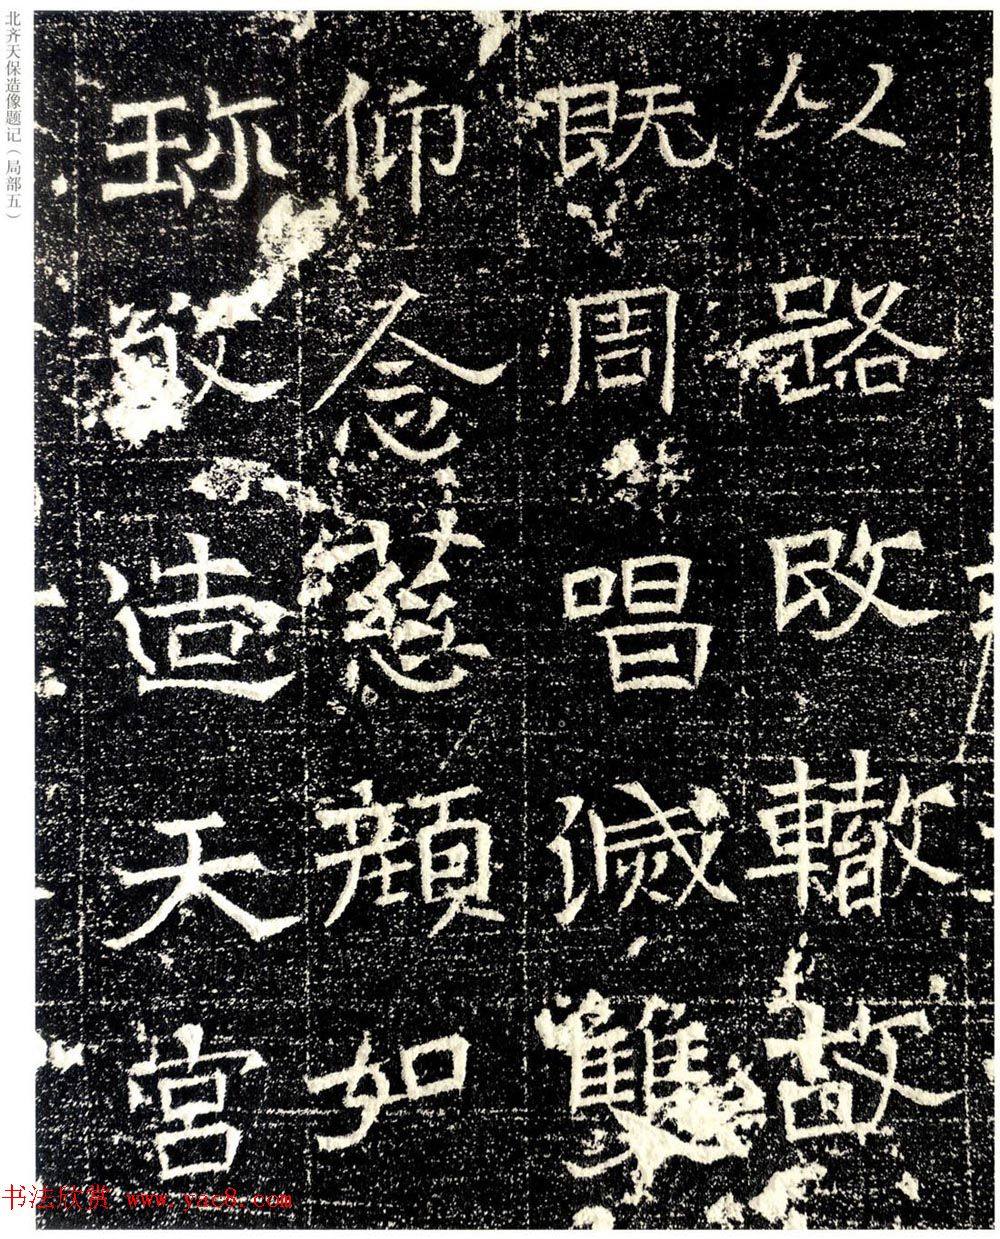 北齐天保造像题记（局部五）
以路改轍故
既周唱滅雙
仰念慈顏如
珎敬造天宮
书法欣赏 www.yac8.com